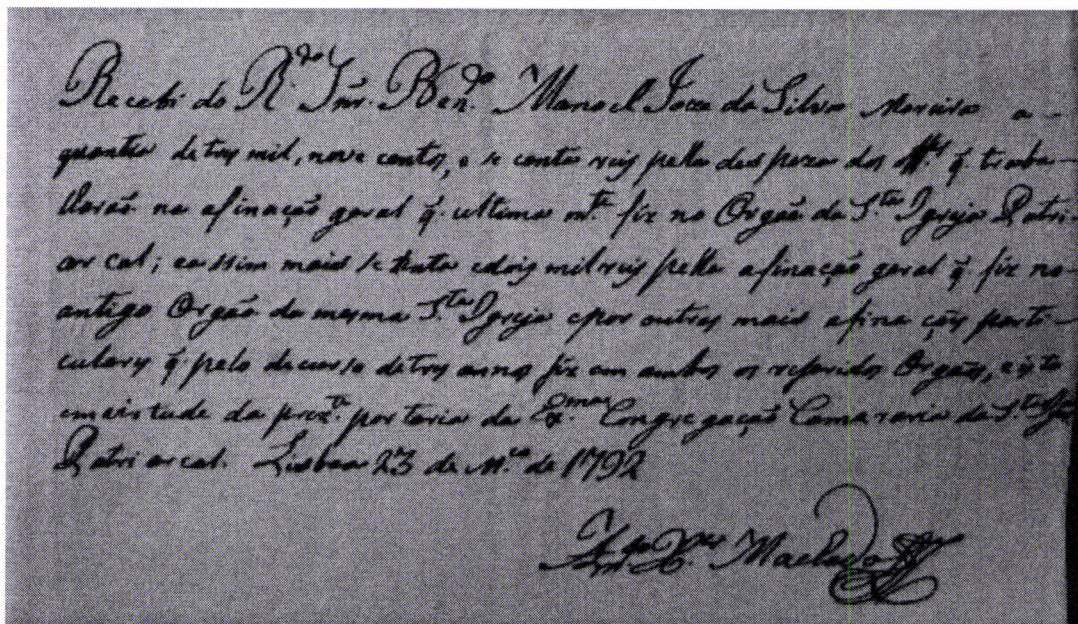 Recebi do R.do Snr. Ben.do Manoel Joze da Silva Moreira a
quantia de tres mil, nove centos, e secenta reis pella despeza dos q̃ traba-
lharaõ na afinaçaõ geral q̃ ultima m.te fiz no Orgaõ da S.ta Igreja Patri-
arcal; e assim mais setenta edois mil reis pella afinaçaõ geral q̃ fiz no
antigo Orgaõ da mesma S.ta Igreja epor outras mais afinaçoẽs parti-
culares q̃ pelo decurso detres annos fiz em ambos os referidos Orgaõs, eisto
emvirtude da prez.te portaria da Ex.ma Congregaçaõ Camararia da S.ta Igr.a
Patriarcal. Lisboa 23 de M.ço de 1792
Machado